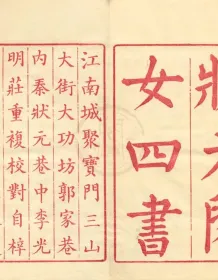 狀元閣
女四書
江南城聚寶門三山
大街大功坊郭家巷
內秦狀元巷中李光
明莊重複校對自梓